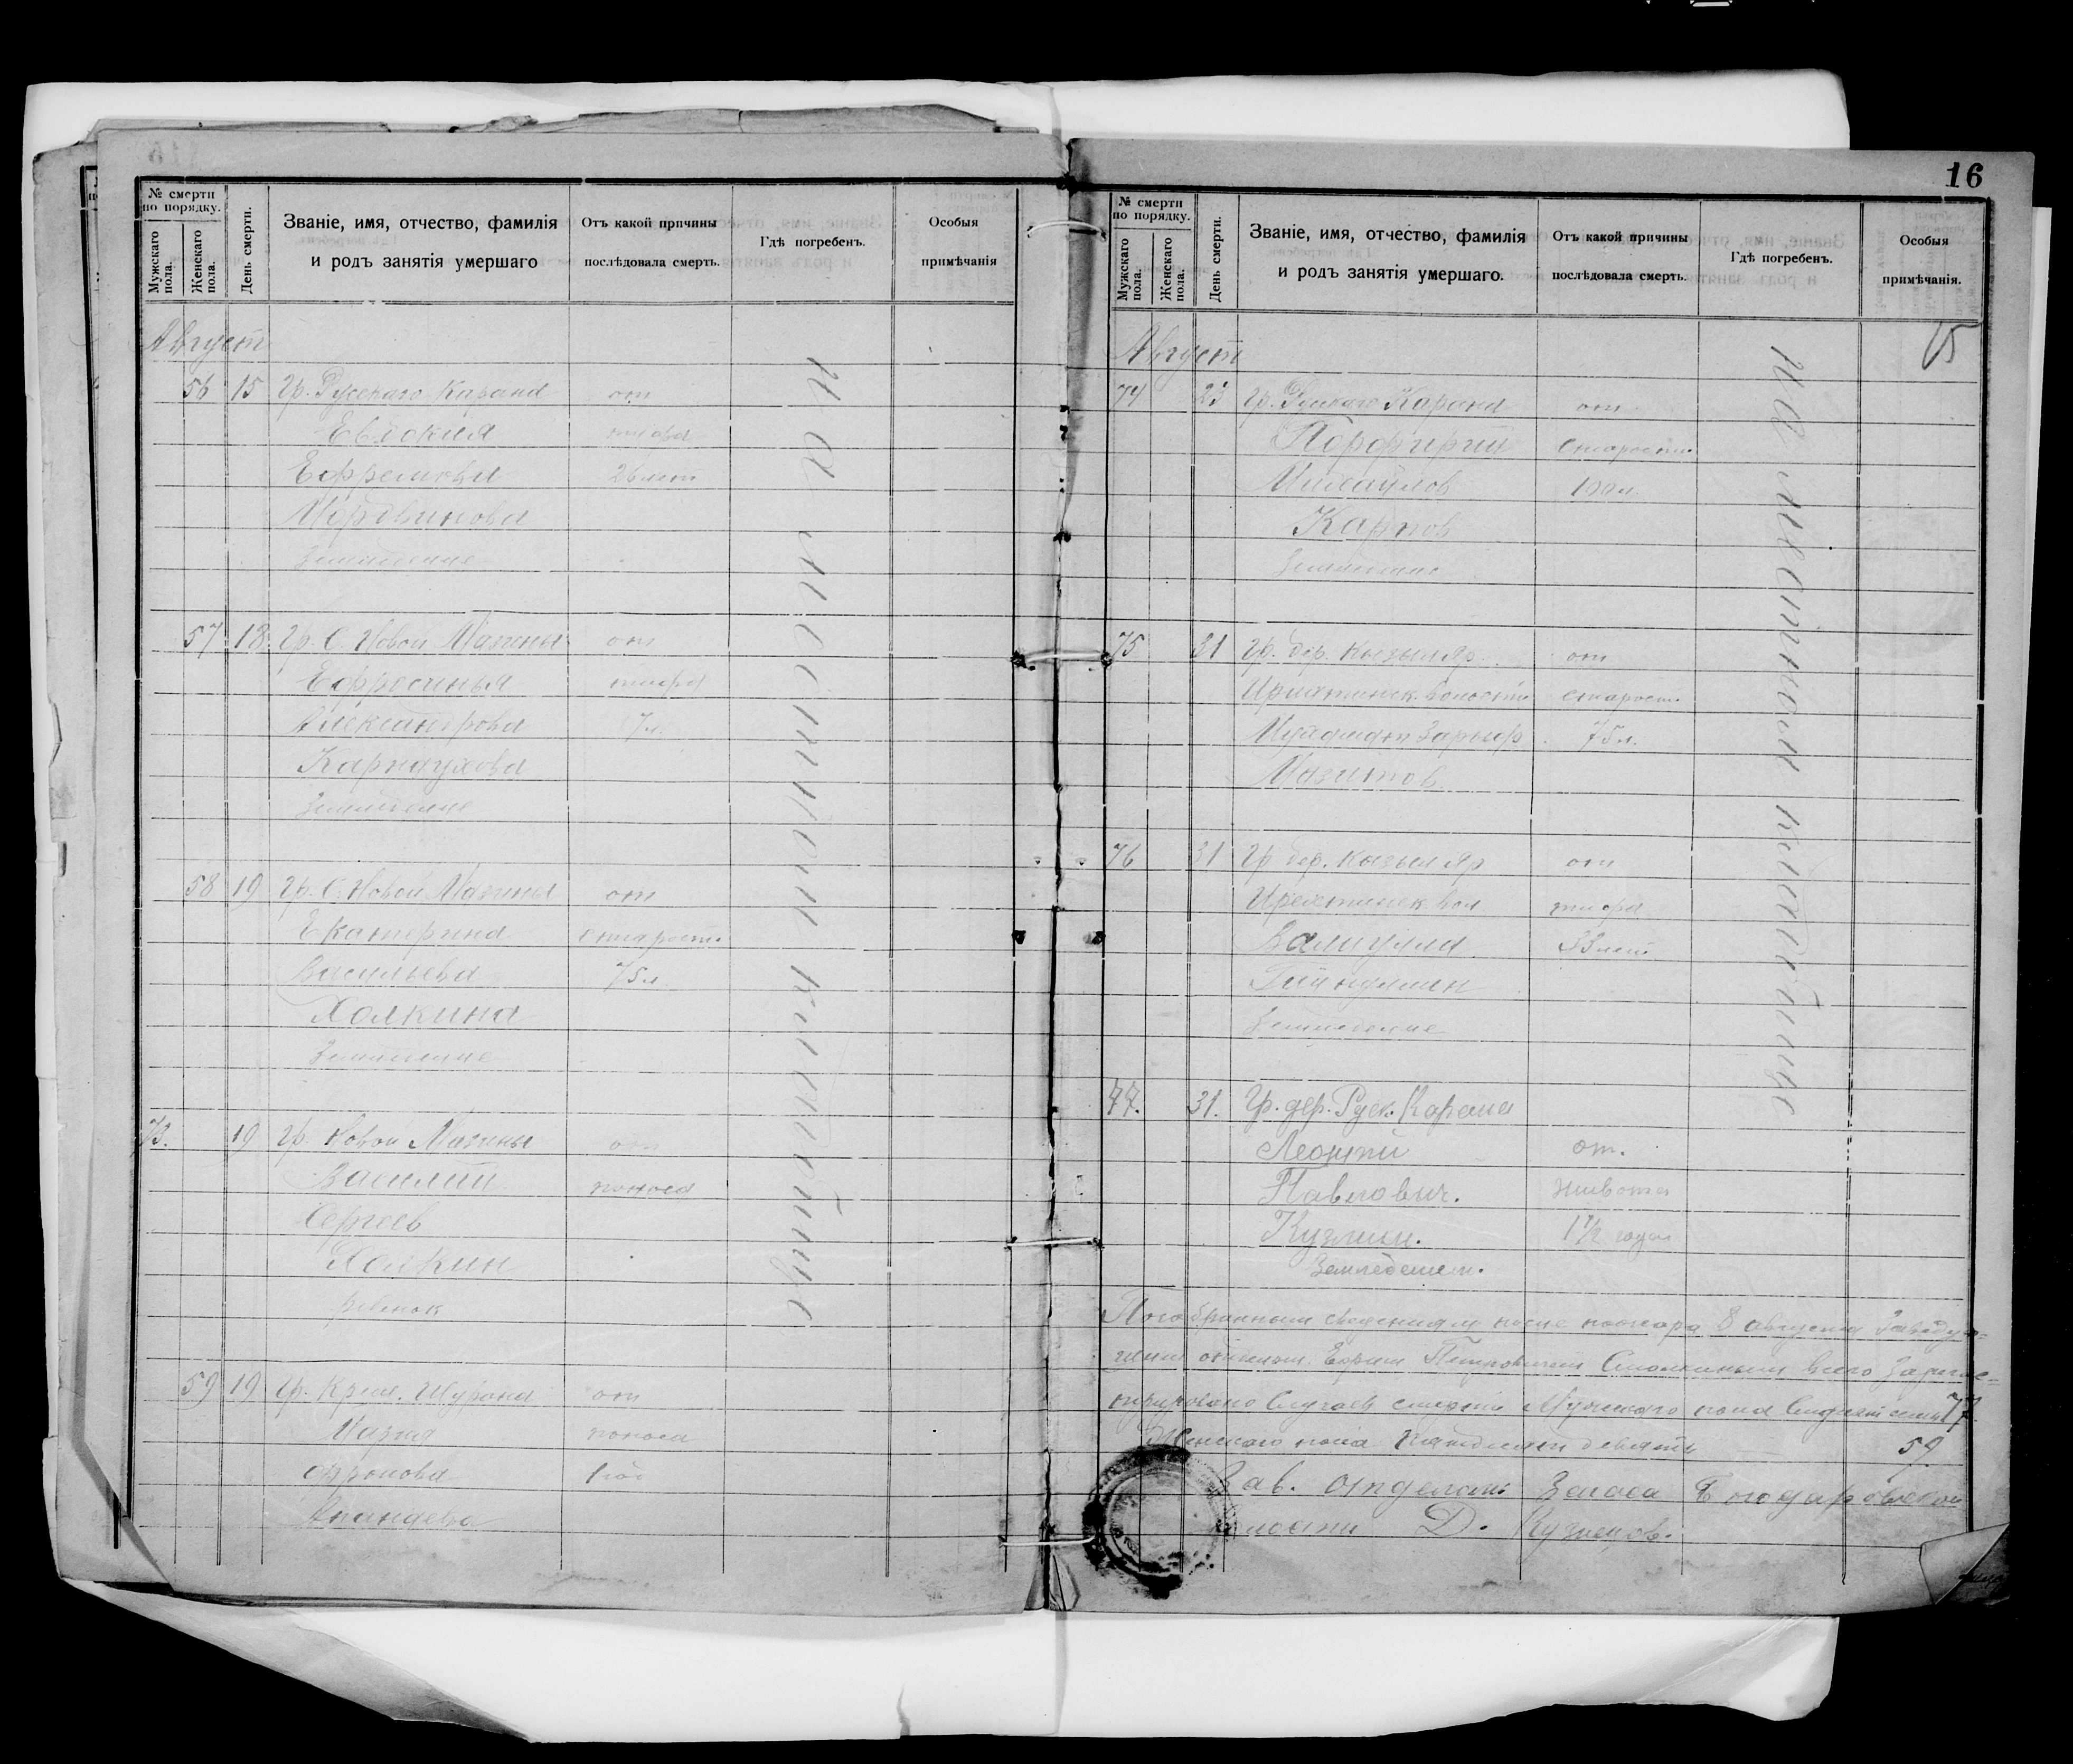 № смерти
по порядку.
Мужскаго
пола.
Женскаго
пола.
День смерти.
Званіе, имя, отчество, фамилія
и родъ занятія умершаго
Отъ какой причины
послѣдовала смерть.
Гдѣ погребенъ.
Особыя
примѣчанія
Август
56 15 Гр. Русскаго Карана от
Евдокия тифа
Ефремова 26 лет
Мордвинова
Земледелие
на местном кладбище
57 18 Гр. С. Новой Мазины от
Ефросинья тифа
Александрова 7 л.
Карнаухова
Земледелие
58 19 Гр. С. Новой Мазины от
Екатерина старост.
Васильева 75 л
Холкина
Земледелие
73. 19 Гр. Новой Мазины от
Василий поноса
Сергеев
Холкин
ребенок
59 19 Гр. Крещ. Шурана от
Мария поноса
1 год
16
№ смерти
по порядку.
Мужскаго
пола.
Женскаго
пола.
День смерти.
Званіе, имя, отчество, фамилія
и родъ занятія умершаго.
Отъ какой причины
послѣдовала смерть.
Гдѣ погребенъ.
Особыя
примѣчанія.
15
Август
74 23 Гр. Русскаго Карана от
Порфирий старости
Михайлов 100 л.
Карпов
Земледелие
на местном кладбище
75 31 Гр. дер. Кызыл Яр от
волости старости
75 л.
Мазитов
76 31 Гр дер. Кызыл Яр от
вол тифа
Валиулла 33 лет
Гайнуллин
Земледелие
77. 31. Гр. дер. Руск. Карана
Леонтий от.
Павлович. живота
Кузмин. 1 1/2 года
Земледелием.
По собранным сведениям после пожара 8 августа Заведую-
щим отделом Ефрем Петровичем всего Зарегис-
трировано Случаев смерти Мужского пола Семьдесят семь 77
Женского пола пятьдесят девять 59
Зав. отделом Загса Богодаровской
волости Д. Кузнецов.